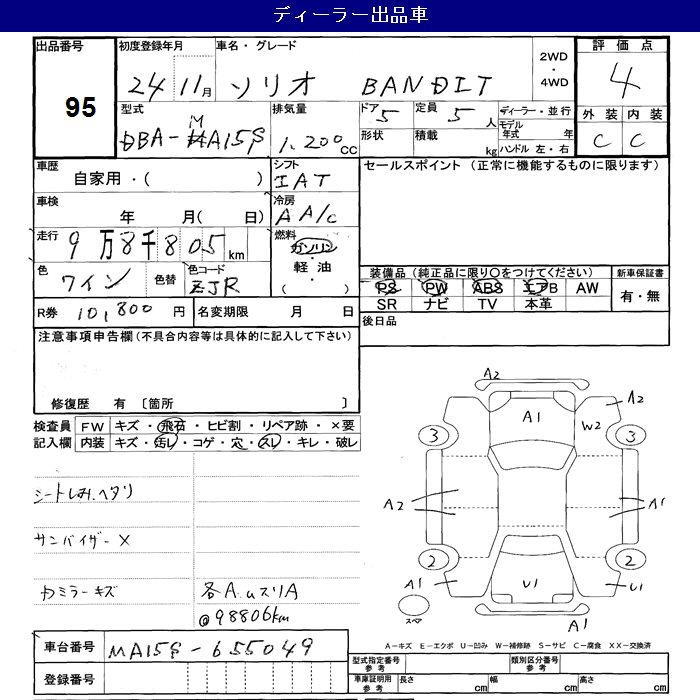 ディーラー出品車
出品番号 初度登録年月 車名・グレード 2WD・4WD 評価点
95 24 11月 ソリオ BANDIT 4
型式 排気量 ドア 定員 ディーラー・並行 外装 内装
DBA-MA15S 1,200CC 5 5人 モデル年式 年 C C
形状 積載 kg ハンドル 左・右
車歴 シフト セールスポイント (正常に機能するものに限ります)
自家用・( ) IAT
車検 冷房
年 月( 日) AA/C
走行 燃料
9万8千805km ガソリン・軽油・( )
色 色替 色コード
ワイン ZJR
装備品(純正品に限り○をつけてください) 新車保証書
PS PW ABS エアB AW 有・無
SR ナビ TV 本革
R券 10,800円 名変期限 月 日 後日品
注意事項申告欄(不具合内容等は具体的に記入して下さい)
修復歴 有 〔箇所
検査員 FW キズ・飛石・ヒビ割・リペア跡・×要
記入欄 内装 キズ・汚レ・コゲ・穴・スレ・キレ・破レ
シートしみ、ヘタリ
サンバイザー×
カミラーキズ 各A.UスリA
@98806km
車台番号 MA15S-655049
登録番号
A2
A1 W2 A2
3 3
A2 A1
2 2
A1 U1 U1
スペア A1
A-キズ E-エクボ U-凹み W-補修跡 S-サビ C-腐食 XX-交換済
型式指定番号 参考 類別区分番号 参考
車庫証明用 参考 長さ cm 幅 cm 高さ cm